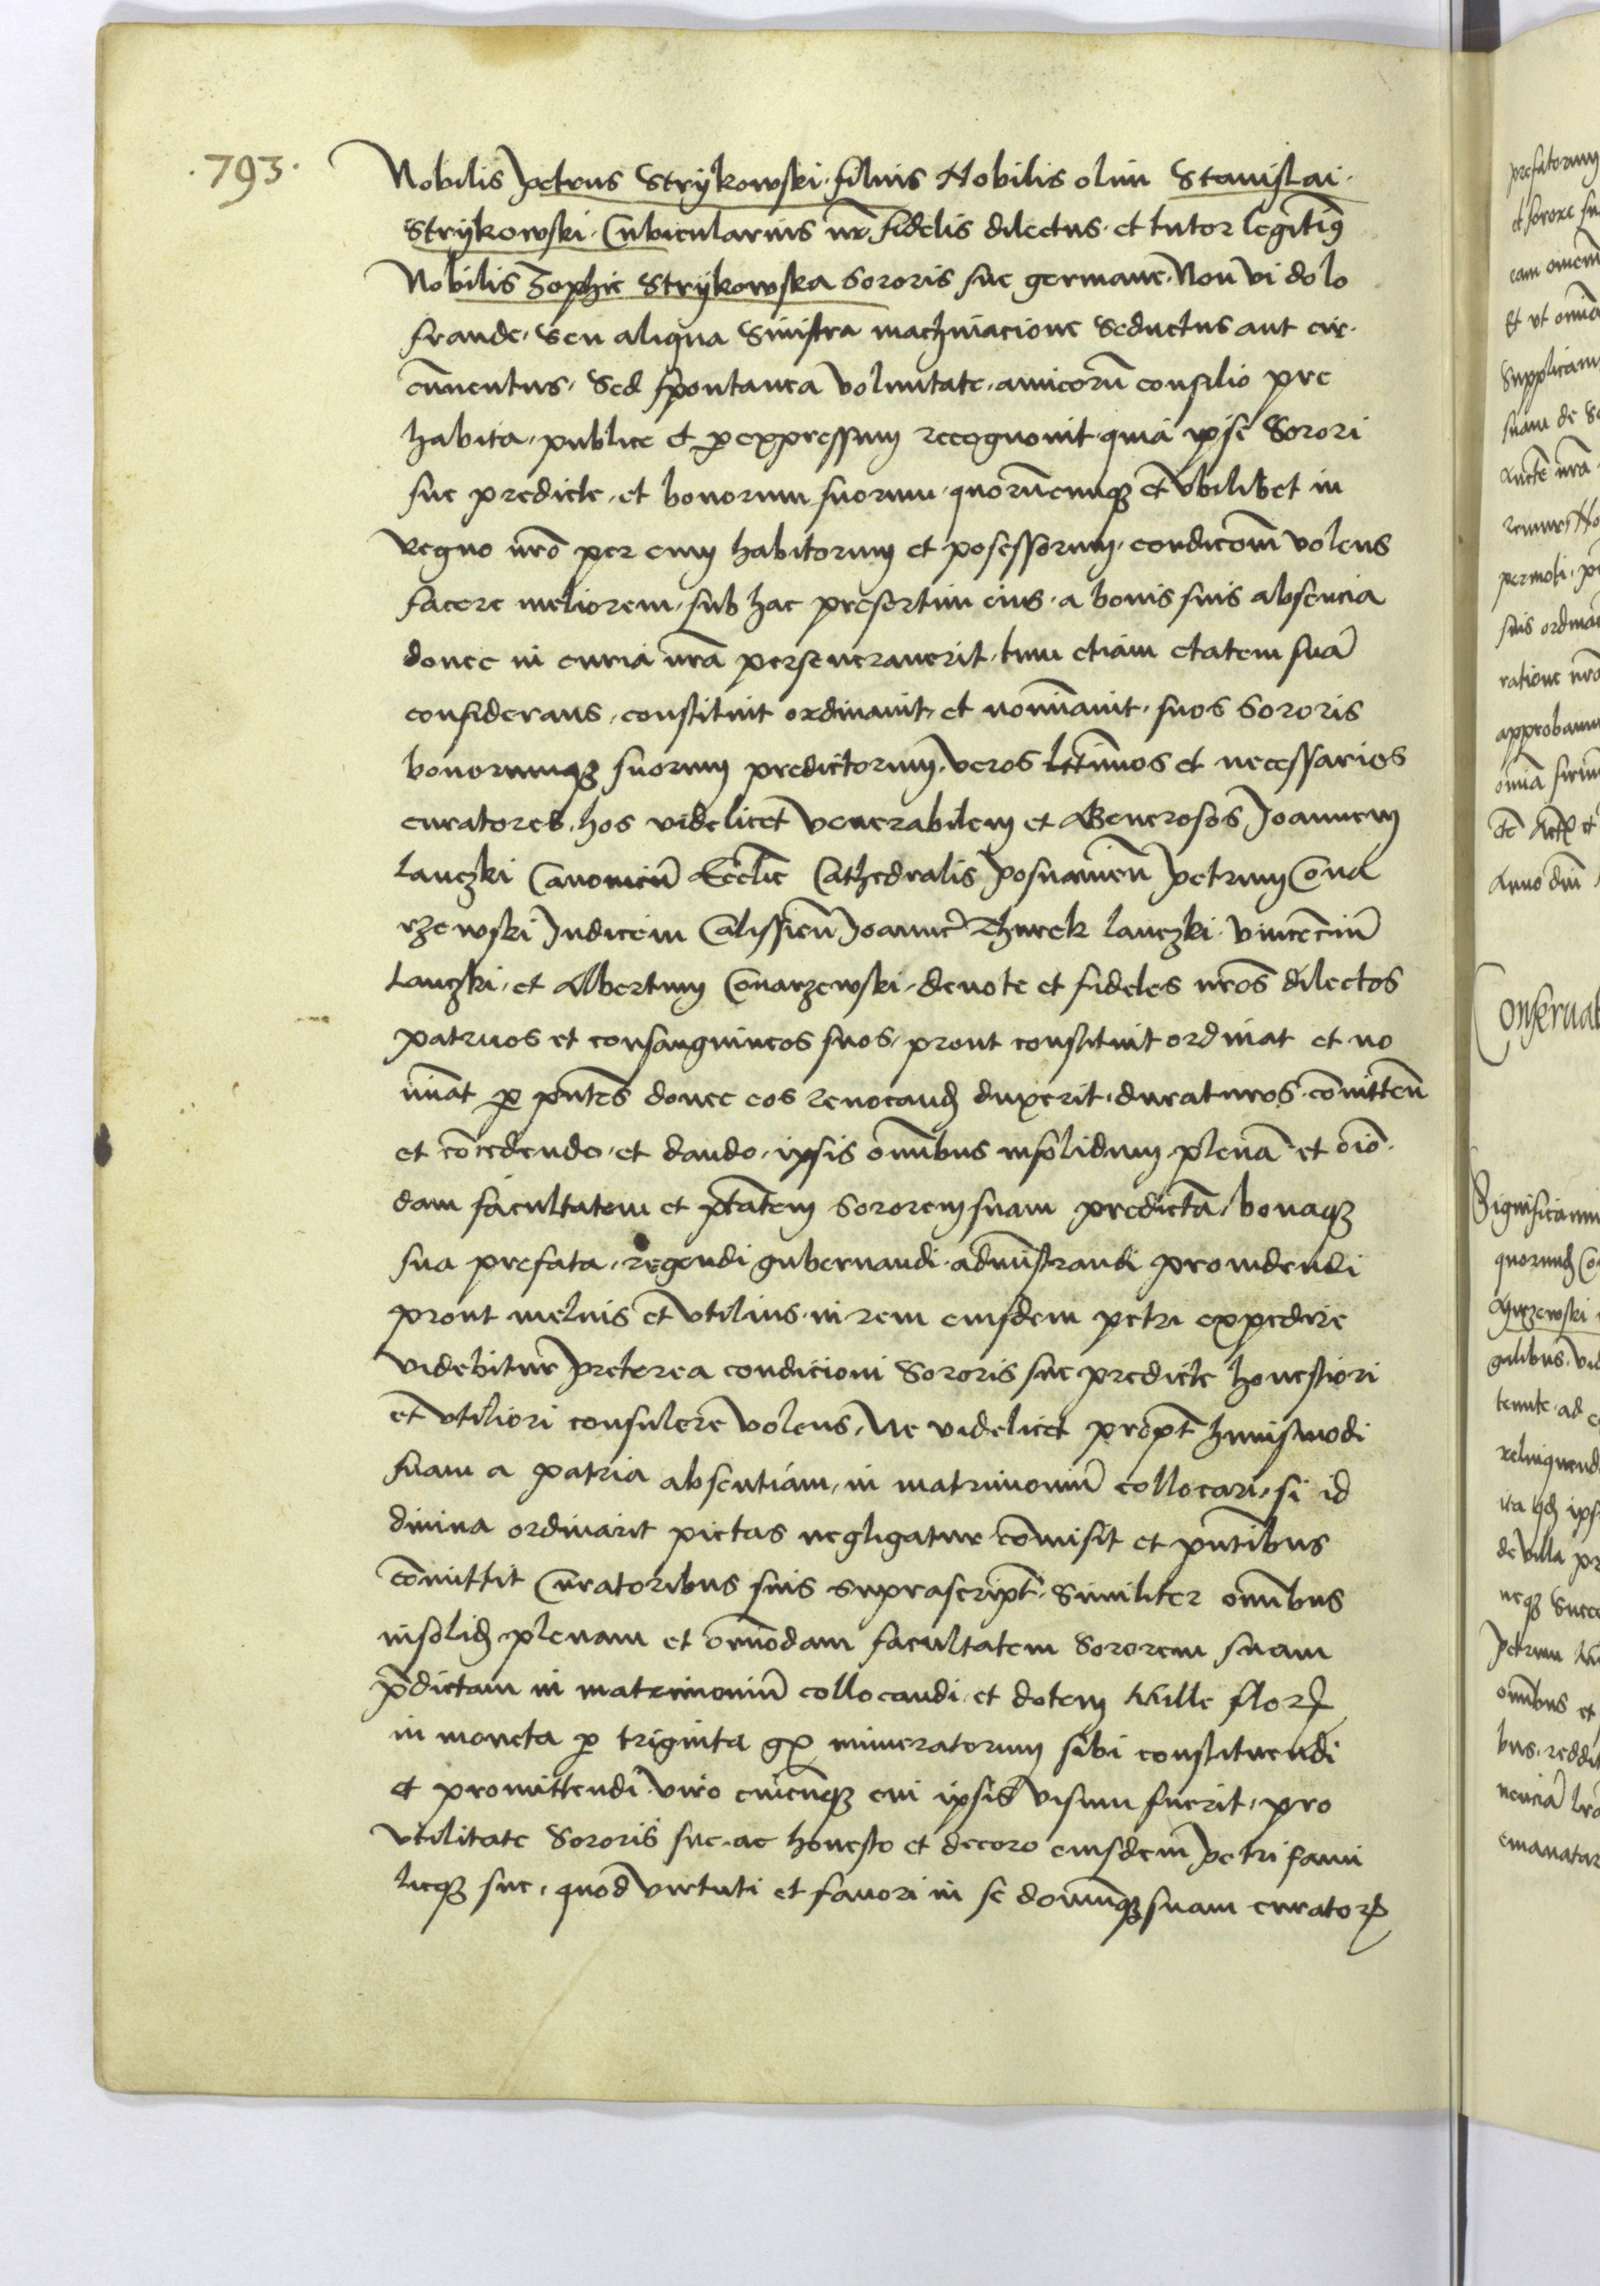 .793.
Nobilis Petrus Strykowski. filius Nobilis olim Stanislai.
Strykowski. Cubicularius nr̄ fidelis dilectus. et tutor legitiꝰ
Nobilis Zophie Strykowska Sororis sue germane. Non vi dolo
fraude. seu aliqua Sinistra machinacione Seductus aut cir-
cūuentus. Sed spontanea voluntate. amicorū consilio pre
habita. publice et ꝑ expressum recognouit. quia ipse Sorori
sue predicte. et bonorum suorum. quorūcumqꝫ et vbilibet in
regno nrō per eum habitorum et possessorum. condicoīm volens
facere meliorem. sub hac presertim eius. a bonis suis absencia
donec in curia nrā perseuerauerit. tum etiam etatem suā
considerans. constituit ordinauit. et nomīauit. suos Sororis
bonorumqꝫ suorum predictorum. veros lttīmos et necessarios
curatores. hos videlicet Venerabilem et Generosos Joannem
Lanczki Canonicū Ecclīe Cathedralis Posnanien̄ Petrum Cona
rzewski Judicem Calissien̄ Joannē Thurek Lanczki. Vincēciū
Lanczki. et Albertum Conarzewski. deuote et fideles nrōs dilectos
patruos et consanguineos suos. prout constituit ordinat et no
mīat ꝑ pn̄tes donec eos reuocand̄ duxerit. duraturos. cōmitten̄
et cōcedendo. et dando. ipsis omībus insolidum. plenā et oīō-
dam facultatem et ptātem Sororem suam predictā. bonaqꝫ
sua prefata. regendi gubernandi. admīstrandi prouidendi
prout melius et vtilius. in rem eiusdem Petri expedire
videbitur Preterea condicioni Sororis sue predicte honestiori
et vtiliori consulere volens. Ne videlicet propt̄ huiusmodi
suam a patria absentiam. in matrimoniū collocari. si id
diuina ordinarit pietas negligatur cōmisit et pn̄tibus
cōmittit Curatoribus suis suprascript̄. Similiter omībus
insolid̄. plenam et omīodam facultatem Sororem suam
p̄dictam in matrimoniū collocandi. et dotem Mille flor̄
in moneta ꝑ triginta gr̄ numeratorum sibi constituendi
et promittendi. viro cuicūqꝫ cui ipsis visum fuerit. pro
vtilitate Sororis sue. ac honesto et decoro eiusdem Petri fami
lieqꝫ sue. quod virtuti et fauori in se domūqꝫ suam curator̄
prefatorum
et sorore su
eam omem
Et vt omīa
Supplicauit
suam de
permoti.
suis ordinac
ratione nrō
approbam
omīa
Anno dn̄i
Conseruat
Significam
quorund̄ Co
relinquend
ita qd̄ ips
de villa pr
neqꝫ Succe
Petrum
omībus et
bus. reddit
emanatar